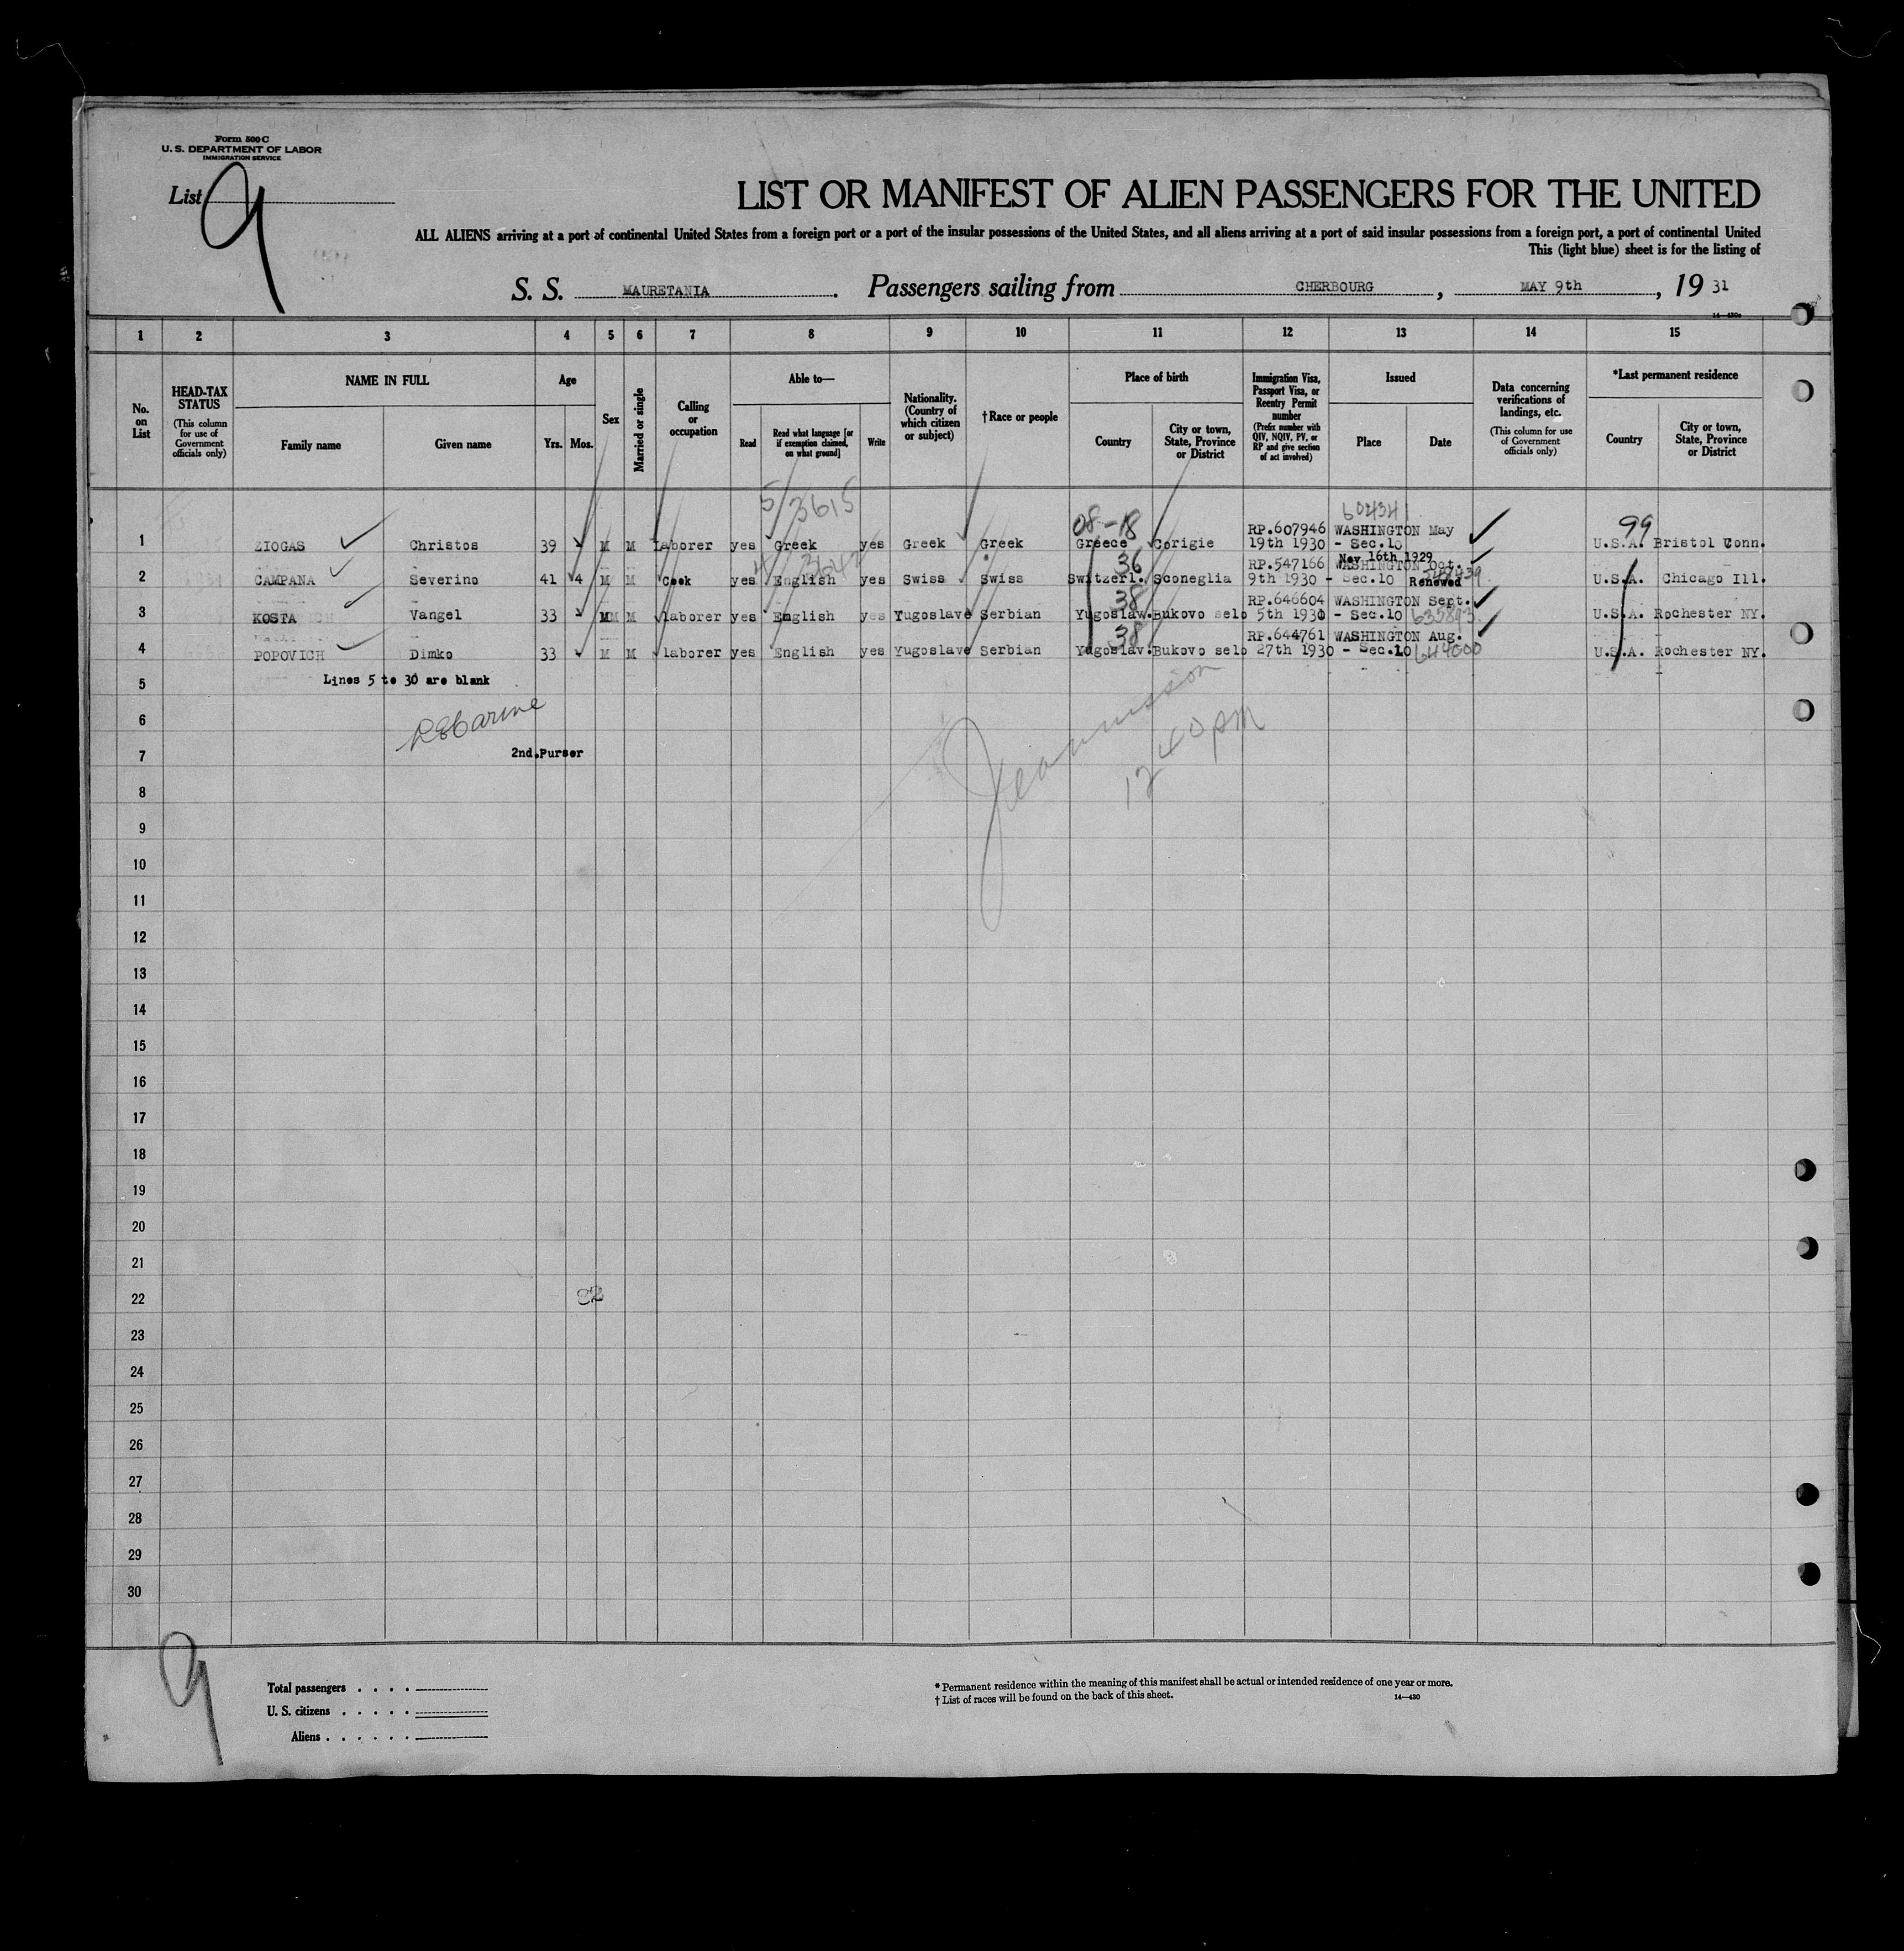 Form 500 C
U. S. DEPARTMENT OF LABOR
IMMIGRATION SERVICE
List 9
LIST OR MANIFEST OF ALIEN PASSENGERS FOR THE UNITED
ALL ALIENS arriving at a port of continental United States from a foreign port or a port of the insular possessions of the United States, and all aliens arriving at a port of said insular possessions from a foreign port, a port of continental United
This (light blue) sheet is for the listing of
S. S. MAURETANIA. Passengers sailing from CHERBOURG, MAY 9th, 19 31
14—430c
1 2 3 4 5 6 7 8 9 10 11 12 13 14 15
No. on List
HEAD-TAX STATUS (This column for use of Government officials only)
NAME IN FULL
Family name Given name
Age
Yrs. Mos.
Sex
Married or single
Calling or occupation
Able to—
Read Read what language [or if exemption claimed, on what ground] Write
Nationality. (Country of which citizen or subject)
†Race or people
Place of birth
Country City or town, State, Province or District
Immigration Visa, Passport Visa, or Reentry Permit number (Prefix number with QIV, NQIV, PV, or RP and give section of act involved)
Issued
Place Date
Data concerning verifications of landings, etc. (This column for use of Government officials only)
*Last permanent residence
Country City or town, State, Province or District
5/3615 602434
08-18 RP.607946 WASHINGTON May 99
1 ZIOGAS Christos 39 M M Laborer yes Greek yes Greek Greek Greece Corigie 19th 1930 - Sec.10 U.S.A. Bristol Conn.
Nov 16th 1929
36 RP.547166 WASHINGTON Oct.
2 CAMPANA Severino 41 4 M M Cook yes English yes Swiss Swiss Switzerl. Sconeglia 9th 1930 - Sec.10 Renewed U.S.A. Chicago Ill.
38 RP.646604 WASHINGTON Sept.
3 KOSTA Vangel 33 M M laborer yes English yes Yugoslave Serbian Yugoslaw. Bukovo selo 5th 1930 - Sec.10 635893 U.S.A. Rochester NY.
38 RP.644761 WASHINGTON Aug.
4 POPOVICH Dimko 33 M M laborer yes English yes Yugoslave Serbian Yugoslav. Bukovo selo 27th 1930 - Sec.10 644000 U.S.A. Rochester NY.
5 Lines 5 to 30 are blank
6
7 2nd.Purser
12 40 pm
8
9
10
11
12
13
14
15
16
17
18
19
20
21
22
23
24
25
26
27
28
29
30
9
Total passengers . . . .
U. S. citizens . . . . .
Aliens . . . . . .
* Permanent residence within the meaning of this manifest shall be actual or intended residence of one year or more.
† List of races will be found on the back of this sheet.
14—430